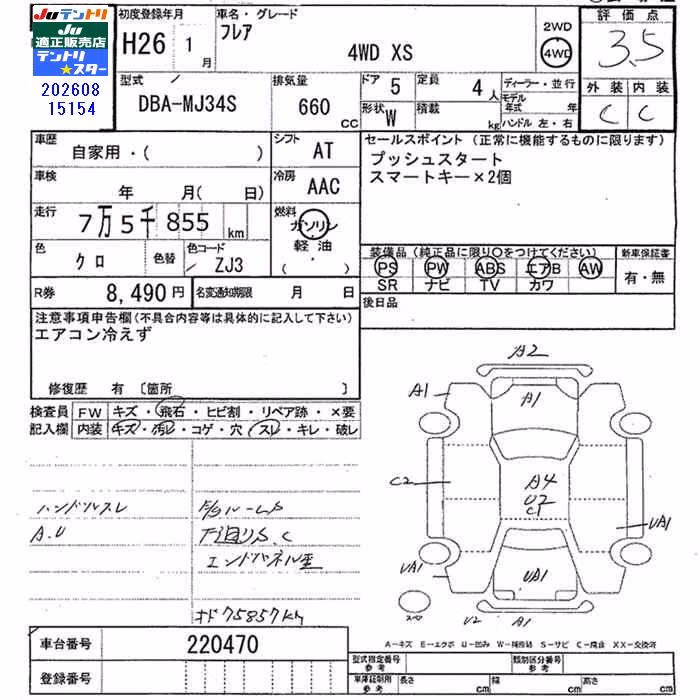 Juテントリ
Ju
適正販売店
テントリ
★スター
202608
15154
初度登録年月
H26 1月
車名・グレード
フレア
4WD XS
2WD
4WD
評価点
3.5
外装 内装
C C
型式
DBA-MJ34S
排気量
660 CC
ドア 5
定員 4人
形状 W
積載 kg
ディーラー・並行
モデル年式 年
ハンドル 左・右
車歴
自家用・( )
シフト AT
車検
年 月( 日)
冷房 AAC
走行
7万5千855km
燃料
ガソリン
軽油
( )
色
クロ
色替
色コード
ZJ3
R券 8,490円
名変通知期限 月 日
セールスポイント(正常に機能するものに限ります)
プッシュスタート
スマートキー×2個
装備品(純正品に限り○をつけてください)
PS PW ABS エアB AW
SR ナビ TV カワ
新車保証書
有・無
後日品
注意事項申告欄(不具合内容等は具体的に記入して下さい)
エアコン冷えず
修復歴 有 〔箇所 〕
検査員
記入欄
FW キズ・飛石・ヒビ割・リペア跡・×要
内装 キズ・汚レ・コゲ・穴・スレ・キレ・破レ
ハンドルスレ
A.U
下廻りS.C
エンドパネル歪
オド75857km
A2
A1
A1
C2
A4
U2
C1
UA1
UA1
UA1
U2
A1
スペ
車台番号 220470
登録番号
A-キズ E-エクボ U-凹み W-補修跡 S-サビ C-腐食 XX-交換済
型式指定番号
参考
類別区分番号
参考
車庫証明用
参考
長さ cm
幅 cm
高さ cm